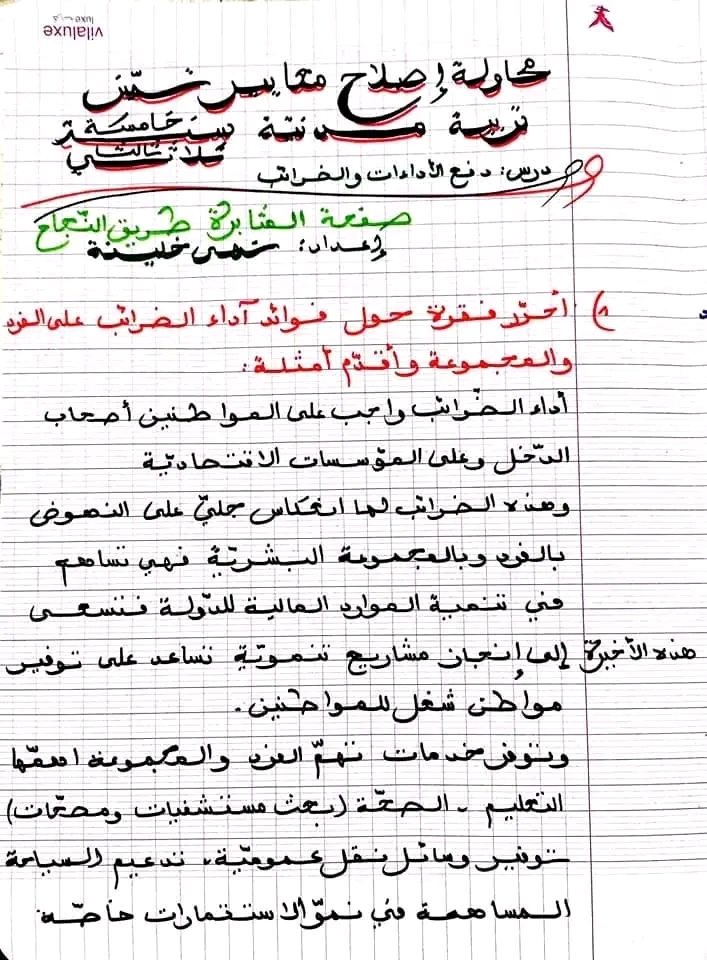 vilaluxe
luxe
محاولة إصلاح مقاييس تهمّ
تربية مدنية سنة خامسة
ثلاثي ثالث
درس: دفع الأداءات والضرائب
صفحة المثابرة طريق النّجاح
إعداد: نهى خلينة
١) أحرّر فقرة حول فوائد آداء الضرائب على الفرد
والمجموعة وأقدّم أمثلة:
أداء الضّرائب واجب على المواطنين أصحاب
الدّخل وعلى المؤسسات الاقتصاديّة
وهذه الضرائب لها انعكاس جليّ على النهوض
بالفرد وبالمجموعة البشريّة فهي تساهم
في تنمية الموارد المالية للدّولة فتسعى
هذه الأخيرة إلى إنجاز مشاريع تنمويّة تساعد على توفير
مواطن شغل للمواطنين.
وتوفّر خدمات تهمّ الفرد والمجموعة أهمّها
التعليم - الصحّة (بعث مستشفيات ومصحّات)
توفير وسائل نقل عموميّة، تدعيم السياحة
المساهمة في نموّ الاستثمارات خاصّة